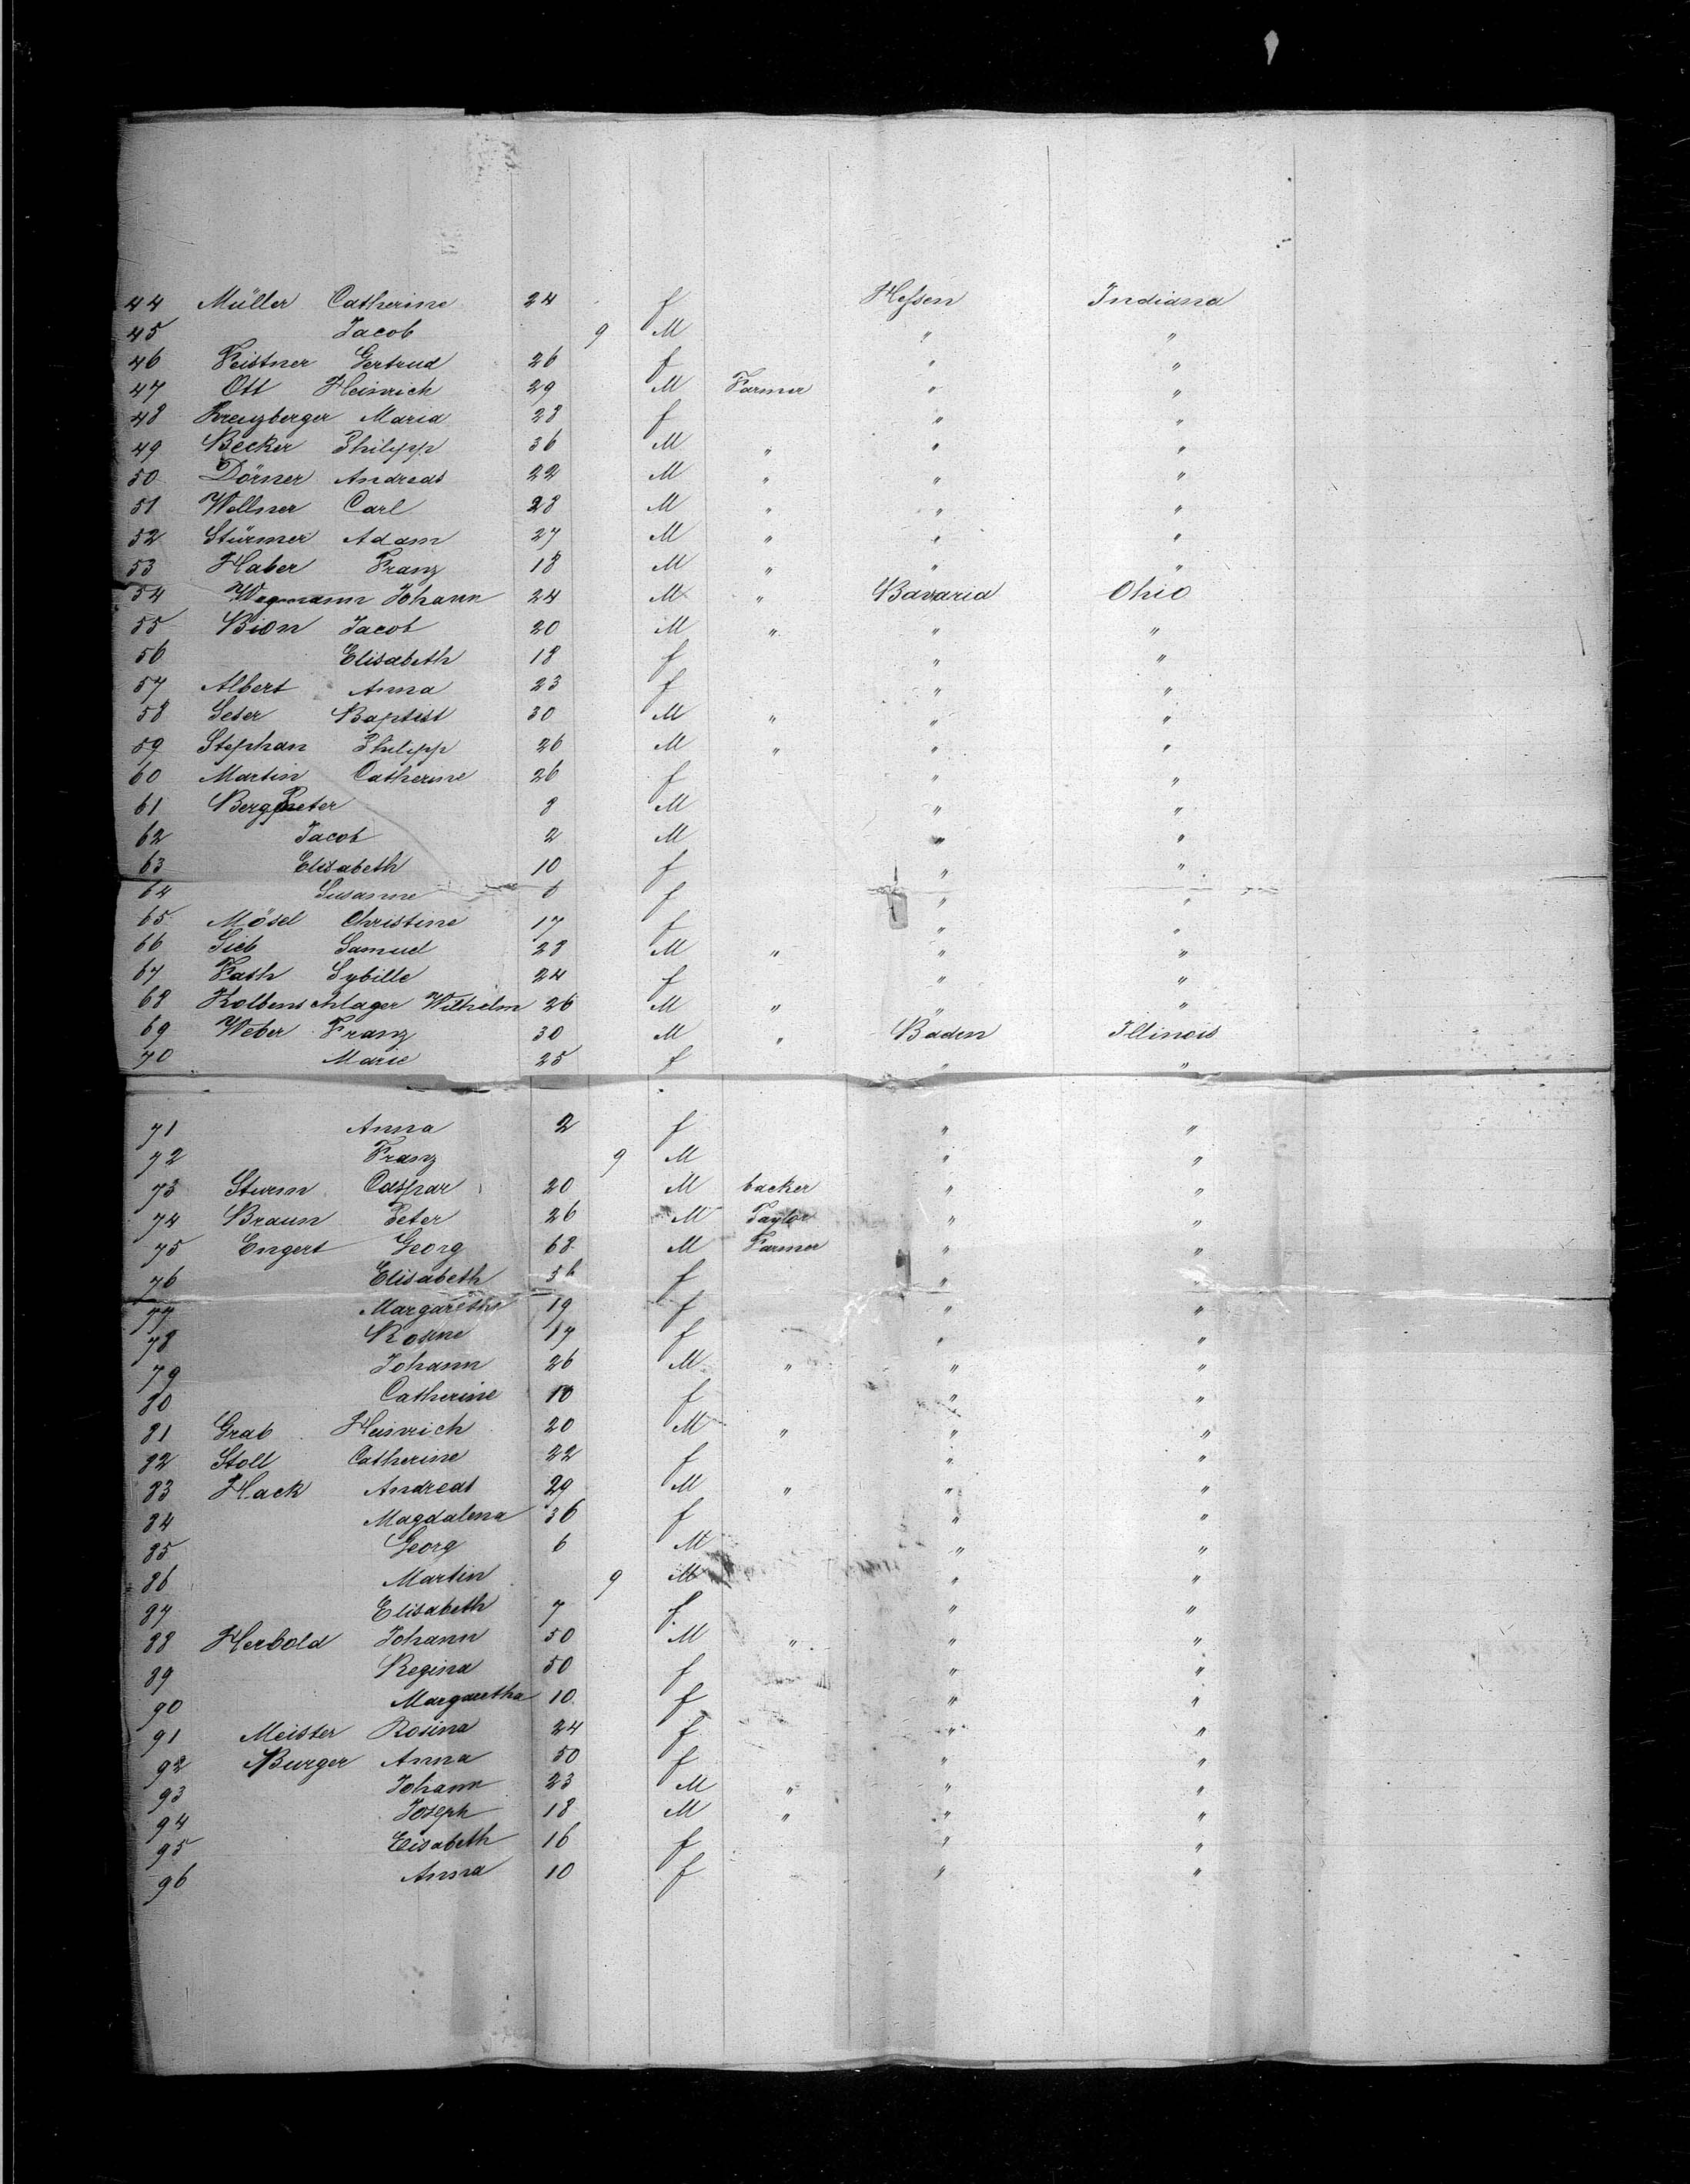 44 Müller Catherine 24 f Hessen Indiana
45 Jacob 9 M " "
46 Feistner Gertrud 26 f " "
47 Ott Heinrich 29 M Farmer " "
48 Kreuzberger Maria 28 f " "
49 Becker Philipp 36 M " " "
50 Dörner Andreas 22 M " " "
51 Wollner Carl 28 M " " "
52 Stürmer Adam 27 M " " "
53 Haber Franz 18 M " " "
54 Wagmann Johann 24 M " Bavaria Ohio
55 Bion Jacob 20 M " " "
56 Elisabeth 18 f " "
57 Albert Anna 23 f " "
58 Baptist 30 M " " "
59 Stephan Philipp 26 M " " "
60 Martin Catherine 26 f " "
61 Berg Peter 8 M " "
62 Jacob 2 M " "
63 Elisabeth 10 f " "
64 Susanne 6 f " "
65 Mösel Christine 17 f " "
66 Samuel 28 M " " "
67 Fath Sybille 24 f " "
68 Kolbenschlager Wilhelm 26 M " " "
69 Weber Franz 30 M " Baden Illinois
70 Marie 25 f " "
71 Anna 2 f " "
72 Franz 9 M " "
73 Sturm Caspar 20 M backer " "
74 Braun Peter 26 M Taylor " "
75 Engert Georg 68 M Farmer " "
76 Elisabeth 56 f " "
77 Margaretha 19 f " "
78 Rosine 17 f " "
79 Johann 26 M " " "
80 Catherine 10 f " "
81 Grab Heinrich 20 M " " "
82 Stoll Catherine 22 f " "
83 Hack Andreas 29 M " " "
84 Magdalena 36 f " "
85 Georg 6 M " "
86 Martin 9 M " "
87 Elisabeth 7 f " "
88 Herbold Johann 50 M " " "
89 Regina 50 f " "
90 Margaretha 10 f " "
91 Meister Rosina 24 f " "
92 Burger Anna 50 f " "
93 Johann 23 M " " "
94 Joseph 18 M " " "
95 Elisabeth 16 f " "
96 Anna 10 f " "